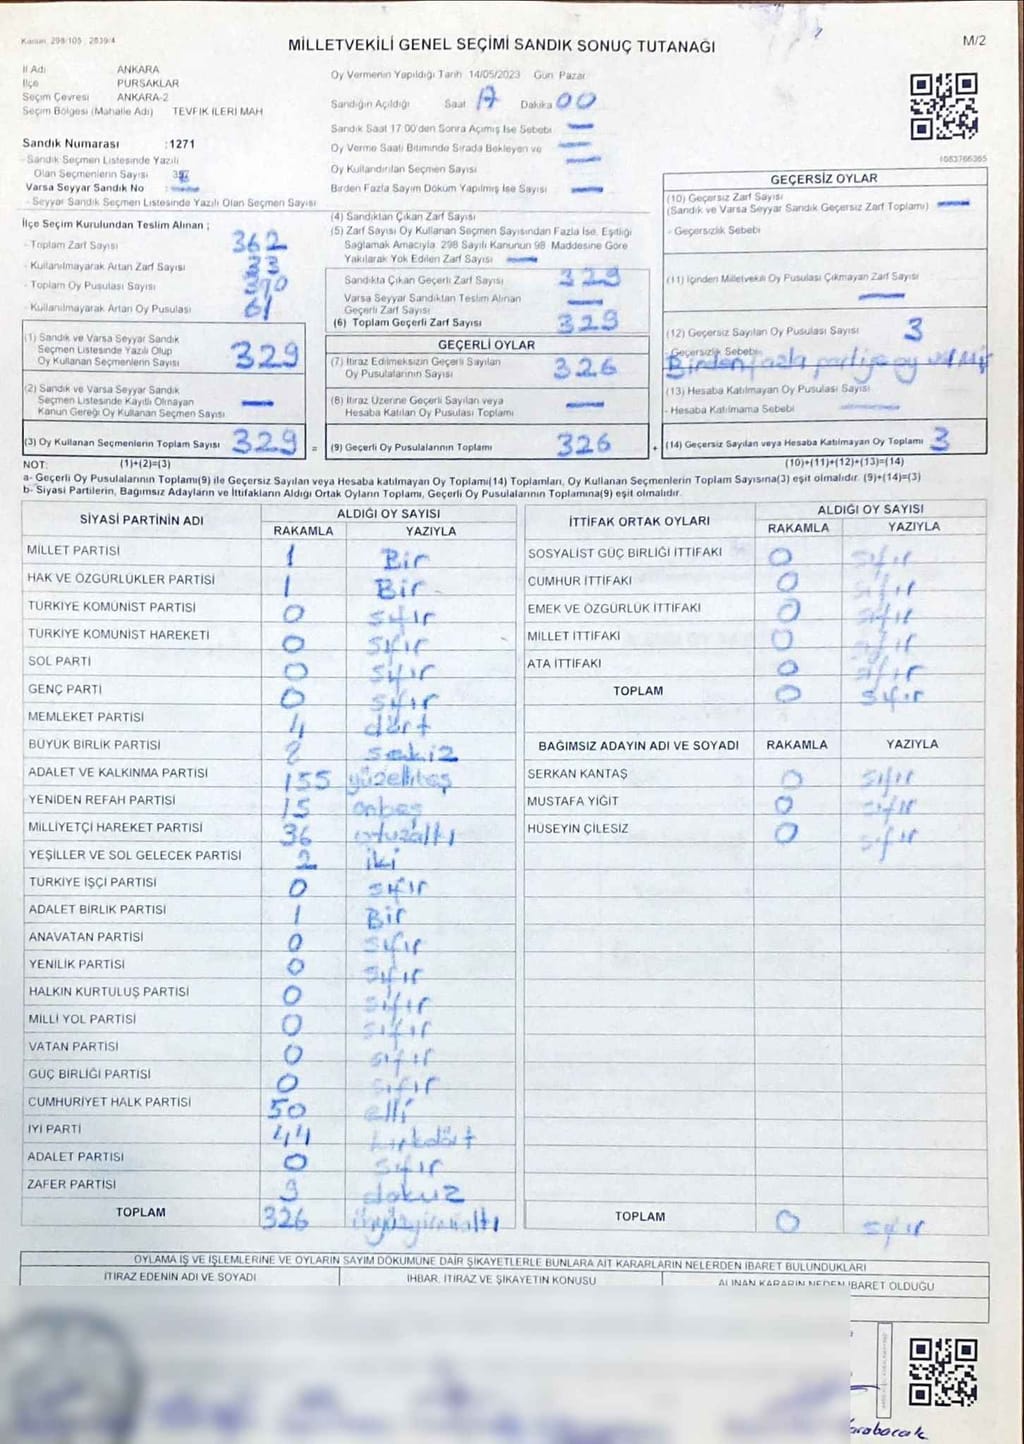 Kanun: 298/105 ; 2839/4
MİLLETVEKİLİ GENEL SEÇİMİ SANDIK SONUÇ TUTANAĞI
M/2
İl Adı ANKARA
İlçe PURSAKLAR
Seçim Çevresi ANKARA-2
Seçim Bölgesi (Mahalle Adı) TEVFİK İLERİ MAH
Sandık Numarası :1271
- Sandık Seçmen Listesinde Yazılı
Olan Seçmenlerin Sayısı
Varsa Seyyar Sandık No :
- Seyyar Sandık Seçmen Listesinde Yazılı Olan Seçmen Sayısı
Oy Vermenin Yapıldığı Tarih 14/05/2023 Gün Pazar
Sandığın Açıldığı Saat 17 Dakika 00
Sandık Saat 17.00'den Sonra Açılmış İse Sebebi
Oy Verme Saati Bitiminde Sırada Bekleyen ve
Oy Kullandırılan Seçmen Sayısı
Birden Fazla Sayım Döküm Yapılmış İse Sayısı
1083766365
İlçe Seçim Kurulundan Teslim Alınan ;
- Toplam Zarf Sayısı 362
- Kullanılmayarak Artan Zarf Sayısı 33
- Toplam Oy Pusulası Sayısı 390
- Kullanılmayarak Artan Oy Pusulası 61
(1) Sandık ve Varsa Seyyar Sandık
Seçmen Listesinde Yazılı Olup
Oy Kullanan Seçmenlerin Sayısı 329
(2) Sandık ve Varsa Seyyar Sandık
Seçmen Listesinde Kayıtlı Olmayan
Kanun Gereği Oy Kullanan Seçmen Sayısı
(3) Oy Kullanan Seçmenlerin Toplam Sayısı 329 =
(4) Sandıktan Çıkan Zarf Sayısı
(5) Zarf Sayısı Oy Kullanan Seçmen Sayısından Fazla İse, Eşitliği
Sağlamak Amacıyla, 298 Sayılı Kanunun 98. Maddesine Göre
Yakılarak Yok Edilen Zarf Sayısı
Sandıkta Çıkan Geçerli Zarf Sayısı 329
Varsa Seyyar Sandıktan Teslim Alınan
Geçerli Zarf Sayısı
(6) Toplam Geçerli Zarf Sayısı 329
GEÇERLİ OYLAR
(7) İtiraz Edilmeksizin Geçerli Sayılan
Oy Pusulalarının Sayısı 326
(8) İtiraz Üzerine Geçerli Sayılan veya
Hesaba Katılan Oy Pusulası Toplamı
(9) Geçerli Oy Pusulalarının Toplamı 326 +
GEÇERSİZ OYLAR
(10) Geçersiz Zarf Sayısı
(Sandık ve Varsa Seyyar Sandık Geçersiz Zarf Toplamı)
- Geçersizlik Sebebi
(11) İçinden Milletvekili Oy Pusulası Çıkmayan Zarf Sayısı
(12) Geçersiz Sayılan Oy Pusulası Sayısı 3
- Geçersizlik Sebebi
Birden fazla partiye oy vermiş
(13) Hesaba Katılmayan Oy Pusulası Sayısı
- Hesaba Katılmama Sebebi
(14) Geçersiz Sayılan veya Hesaba Katılmayan Oy Toplamı 3
NOT: (1)+(2)=(3) (10)+(11)+(12)+(13)=(14)
a- Geçerli Oy Pusulalarının Toplamı(9) ile Geçersiz Sayılan veya Hesaba katılmayan Oy Toplamı(14) Toplamları, Oy Kullanan Seçmenlerin Toplam Sayısına(3) eşit olmalıdır. (9)+(14)=(3)
b- Siyasi Partilerin, Bağımsız Adayların ve İttifakların Aldığı Ortak Oyların Toplamı, Geçerli Oy Pusulalarının Toplamına(9) eşit olmalıdır.
SİYASİ PARTİNİN ADI ALDIĞI OY SAYISI
RAKAMLA YAZIYLA
MİLLET PARTİSİ 1 Bir
HAK VE ÖZGÜRLÜKLER PARTİSİ 1 Bir
TÜRKİYE KOMÜNİST PARTİSİ 0 sıfır
TÜRKİYE KOMÜNİST HAREKETİ 0 sıfır
SOL PARTİ 0 sıfır
GENÇ PARTİ 0 sıfır
MEMLEKET PARTİSİ 4 dört
BÜYÜK BİRLİK PARTİSİ 8 sekiz
ADALET VE KALKINMA PARTİSİ 155 yüzellibeş
YENİDEN REFAH PARTİSİ 15 onbeş
MİLLİYETÇİ HAREKET PARTİSİ 36 otuzaltı
YEŞİLLER VE SOL GELECEK PARTİSİ 2 iki
TÜRKİYE İŞÇİ PARTİSİ 0 sıfır
ADALET BİRLİK PARTİSİ 1 Bir
ANAVATAN PARTİSİ 0 sıfır
YENİLİK PARTİSİ 0 sıfır
HALKIN KURTULUŞ PARTİSİ 0 sıfır
MİLLİ YOL PARTİSİ 0 sıfır
VATAN PARTİSİ 0 sıfır
GÜÇ BİRLİĞİ PARTİSİ 0 sıfır
CUMHURİYET HALK PARTİSİ 50 elli
İYİ PARTİ 44 kırkdört
ADALET PARTİSİ 0 sıfır
ZAFER PARTİSİ 9 dokuz
TOPLAM 326 üçyüzyirmialtı
İTTİFAK ORTAK OYLARI ALDIĞI OY SAYISI
RAKAMLA YAZIYLA
SOSYALİST GÜÇ BİRLİĞİ İTTİFAKI 0 sıfır
CUMHUR İTTİFAKI 0 sıfır
EMEK VE ÖZGÜRLÜK İTTİFAKI 0 sıfır
MİLLET İTTİFAKI 0 sıfır
ATA İTTİFAKI 0 sıfır
TOPLAM 0 sıfır
BAĞIMSIZ ADAYIN ADI VE SOYADI RAKAMLA YAZIYLA
SERKAN KANTAŞ 0 sıfır
MUSTAFA YİĞİT 0 sıfır
HÜSEYİN ÇİLESİZ 0 sıfır
TOPLAM 0 sıfır
OYLAMA İŞ VE İŞLEMLERİNE VE OYLARIN SAYIM DÖKÜMÜNE DAİR ŞİKAYETLERLE BUNLARA AİT KARARLARIN NELERDEN İBARET BULUNDUKLARI
İTİRAZ EDENİN ADI VE SOYADI İHBAR, İTİRAZ VE ŞİKAYETİN KONUSU ALINAN KARARIN NEDEN İBARET OLDUĞU